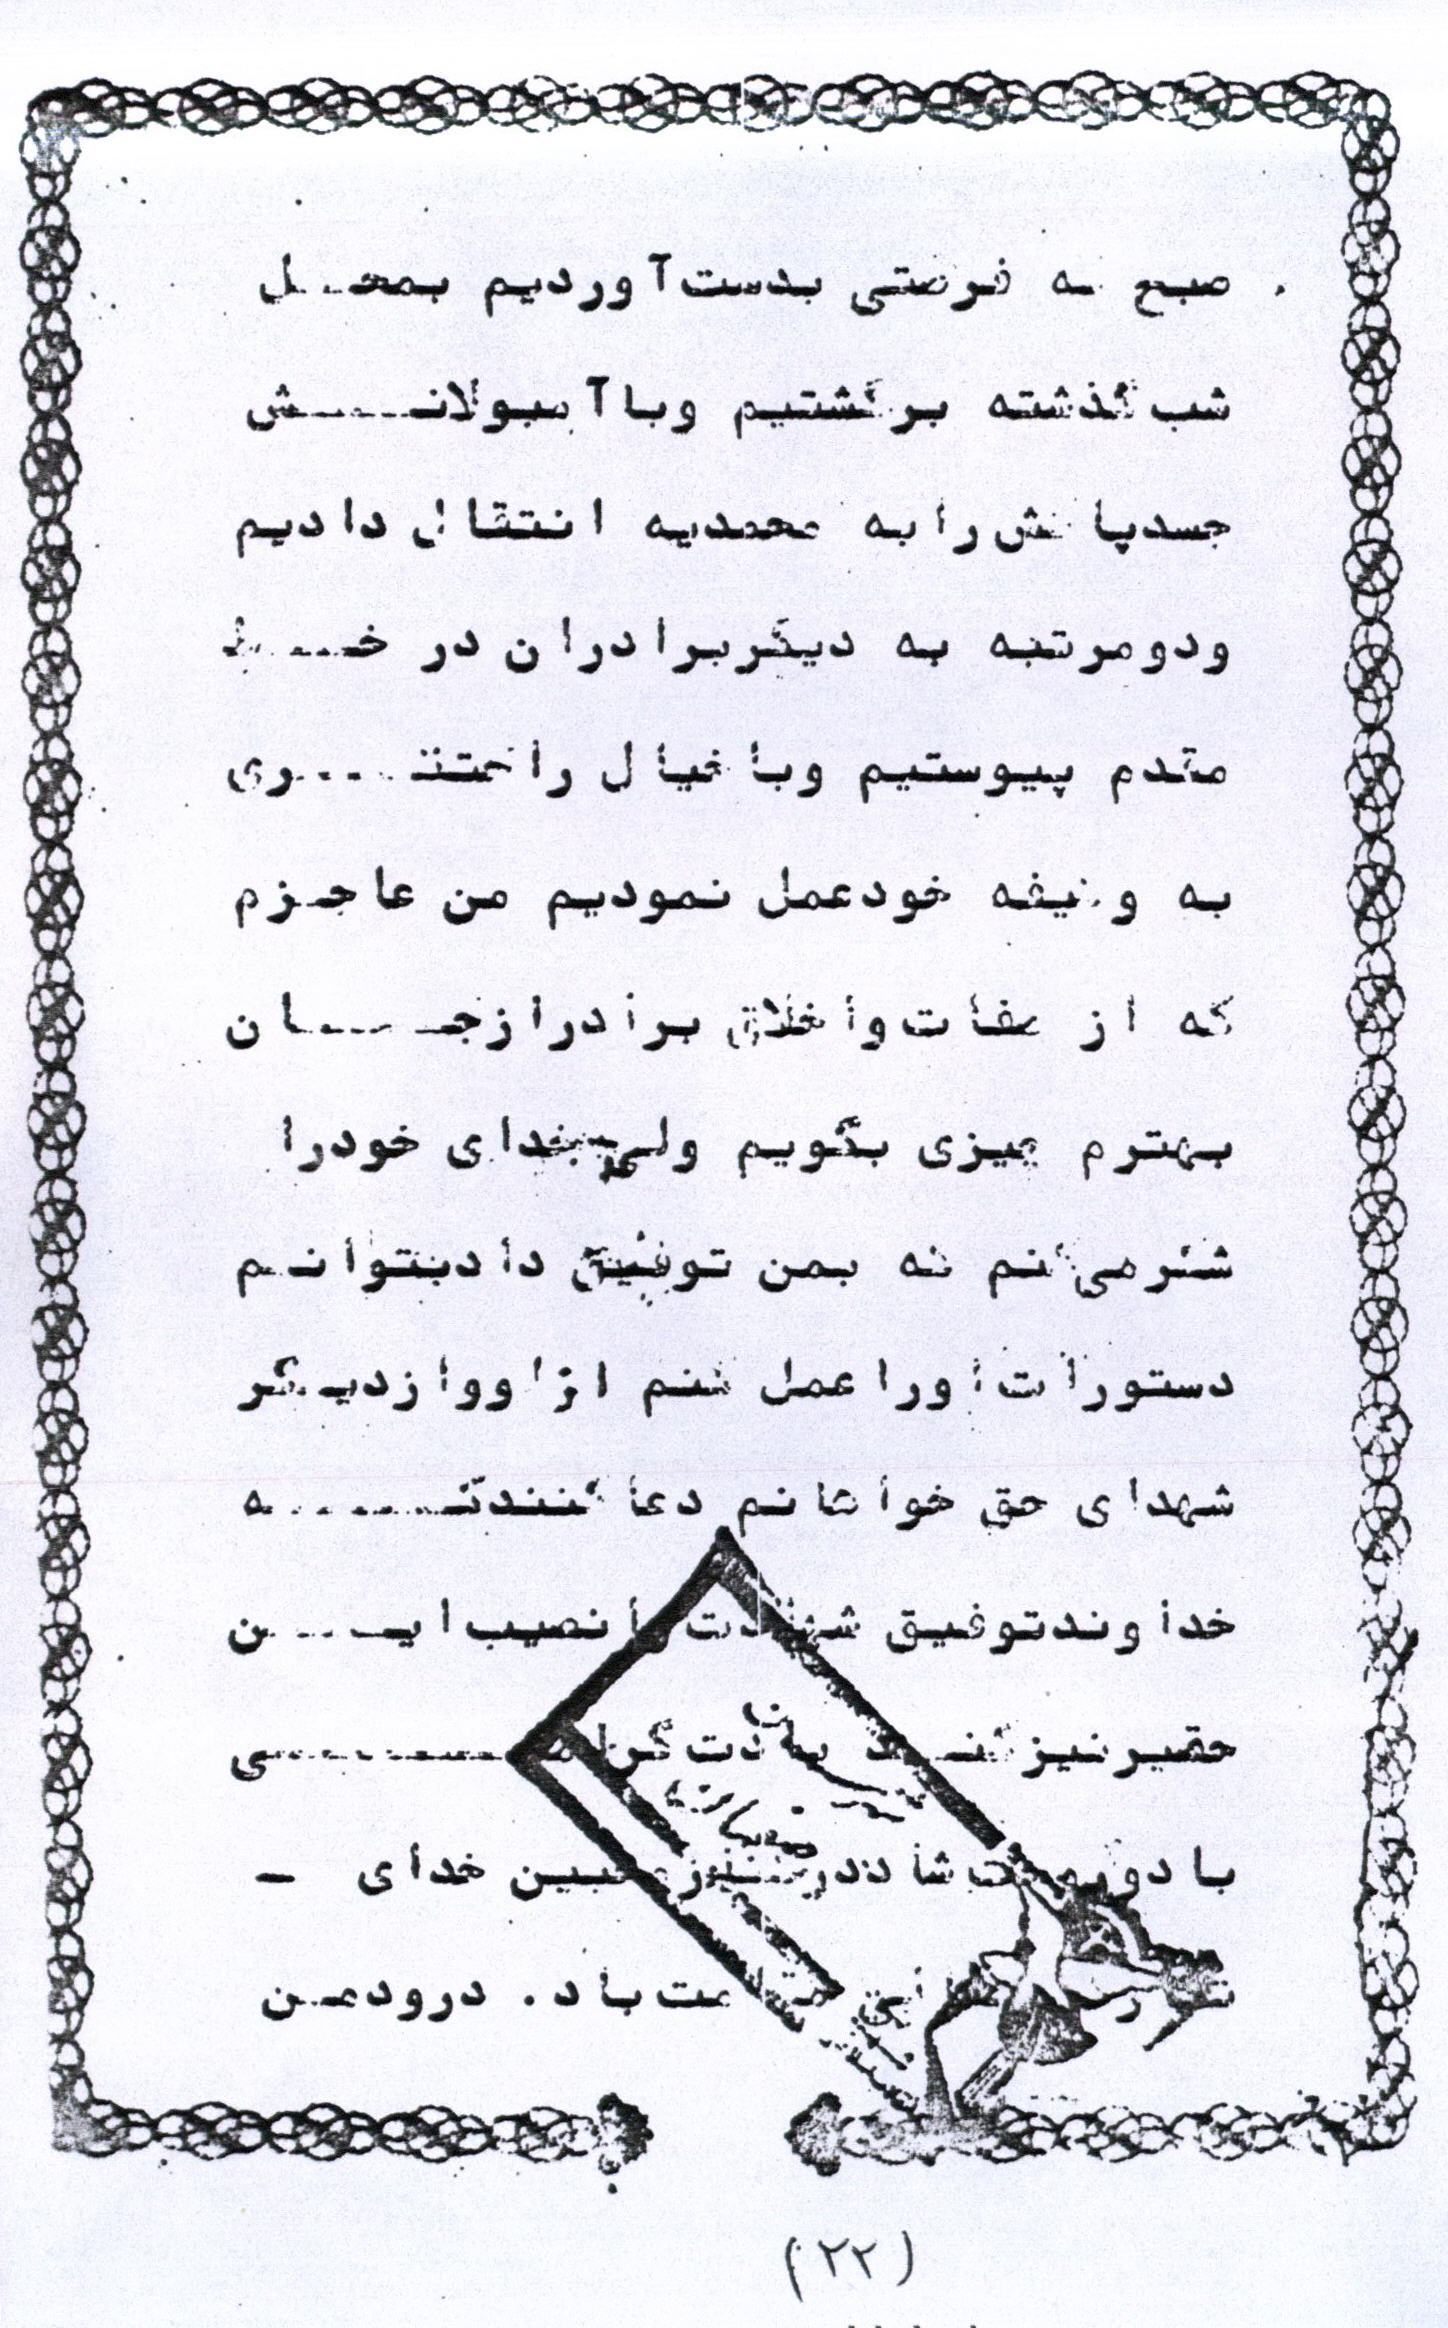 صبح که فرصتی بدست آوردیم بمحــل
شب گذشته برگشتیم وبا آمبولانــــش
جسدپاکش را به محمدیه انتقال دادیم
ودومرتبه به دیگربرادران در خــــط
مقدم پیوستیم وبا خیال راحتتـــــری
به وظیفه خودعمل نمودیم من عاجـزم
که از صفات واخلاق برادرازجــــان
بهترم چیزی بگویم ولی خدای خودرا
شکرمی کنم که بمن توفیق دادبتوانـم
دستورات اورا عمل کنم ازاووازدیـگر
شهدای حق خواهانم دعا کنندکـــــه
خداوندتوفیق شهادت را نصیب ایـــن
حقیرنیزکنـد
بادو شاندر خدای -
باد. درودمـن
(۲۲)